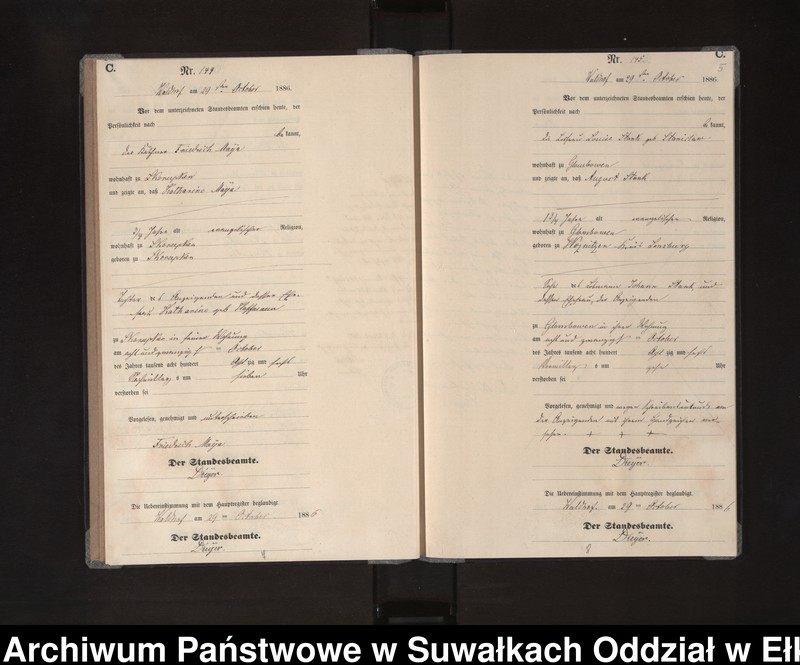 C.
Nr. 144
Waldhof am 29 ten October 1886.
Vor dem unterzeichneten Standesbeamten erschien heute, der
Persönlichkeit nach
be kannt,
der Käthner Friedrich Maija
wohnhaft zu Skomatzko
und zeigte an, daß Katharine Maija
3/4 Jahre alt evangelischer Religion,
wohnhaft zu
geboren zu
Tochter des Anzeigenden und dessen Ehe-
frau Katharine geb Hoffmann
zu in seiner Wohnung
am acht und zwanzigst en October
des Jahres tausend acht hundert acht zig und sechs
Nachmittag s um sieben Uhr
verstorben sei
Vorgelesen, genehmigt und unterschrieben
Friedrich Maija
Der Standesbeamte.
Dreyer.
Die Uebereinstimmung mit dem Hauptregister beglaubigt.
Waldhof am 29 ten October 1886
Der Standesbeamte.
Dreyer.
C.
5
Nr. 145
Waldhof am 29 ten October 1886.
Vor dem unterzeichneten Standesbeamten erschien heute, der
Persönlichkeit nach
be kannt,
die Losfrau Louise geb
wohnhaft zu Glombowen
und zeigte an, daß August
1 3/4 Jahre alt evangelischer Religion,
wohnhaft zu Glombowen
geboren zu Woznitzen Kreis
Sohn des Johann und
dessen Ehefrau, der Anzeigenden
zu Glombowen in ihrer Wohnung
am acht und zwanzigst en October
des Jahres tausend acht hundert acht zig und sechs
Vormittag s um Uhr
verstorben sei
Vorgelesen, genehmigt und wegen
der Anzeigenden mit ihrem Handzeichen ver-
sehen. + + +
Der Standesbeamte.
Dreyer.
Die Uebereinstimmung mit dem Hauptregister beglaubigt.
Waldhof. am 29 ten October 1886
Der Standesbeamte.
Dreyer.
Archiwum Państwowe w Suwałkach Oddział w Eł